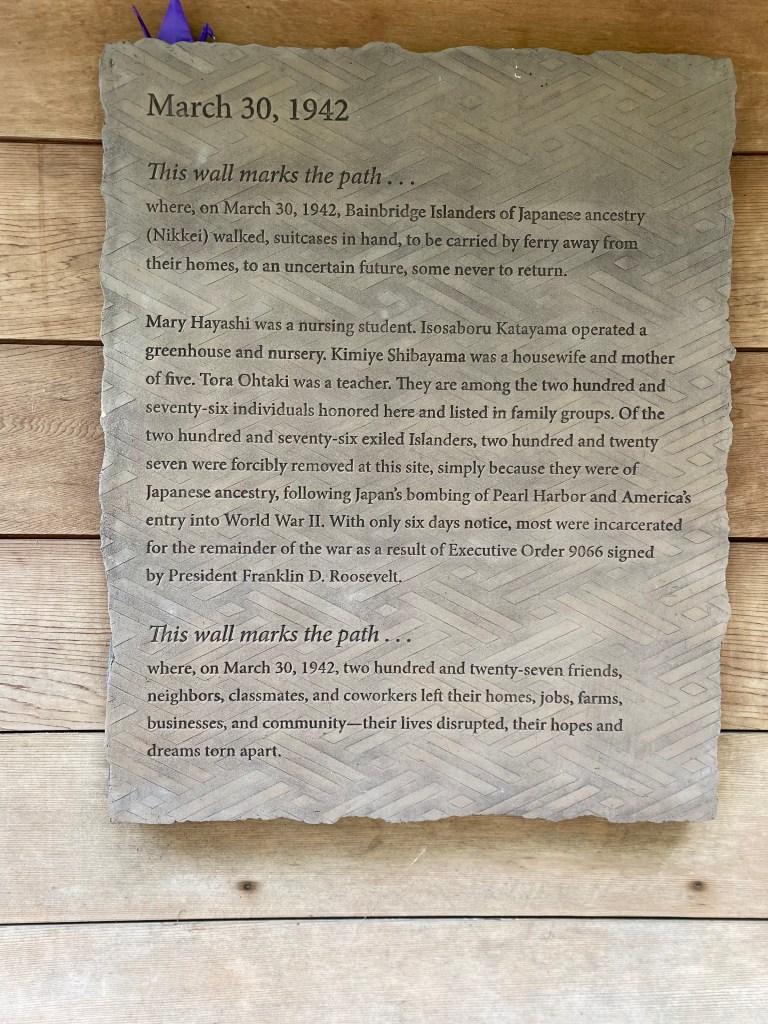 March 30, 1942
This wall marks the path . . .
where, on March 30, 1942, Bainbridge Islanders of Japanese ancestry
(Nikkei) walked, suitcases in hand, to be carried by ferry away from
their homes, to an uncertain future, some never to return.
Mary Hayashi was a nursing student. Isosaboru Katayama operated a
greenhouse and nursery. Kimiye Shibayama was a housewife and mother
of five. Tora Ohtaki was a teacher. They are among the two hundred and
seventy-six individuals honored here and listed in family groups. Of the
two hundred and seventy-six exiled Islanders, two hundred and twenty
seven were forcibly removed at this site, simply because they were of
Japanese ancestry, following Japan's bombing of Pearl Harbor and America's
entry into World War II. With only six days notice, most were incarcerated
for the remainder of the war as a result of Executive Order 9066 signed
by President Franklin D. Roosevelt.
This wall marks the path . . .
where, on March 30, 1942, two hundred and twenty-seven friends,
neighbors, classmates, and coworkers left their homes, jobs, farms,
businesses, and community—their lives disrupted, their hopes and
dreams torn apart.